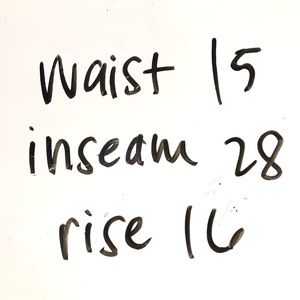 waist 15
inseam 28
rise 16